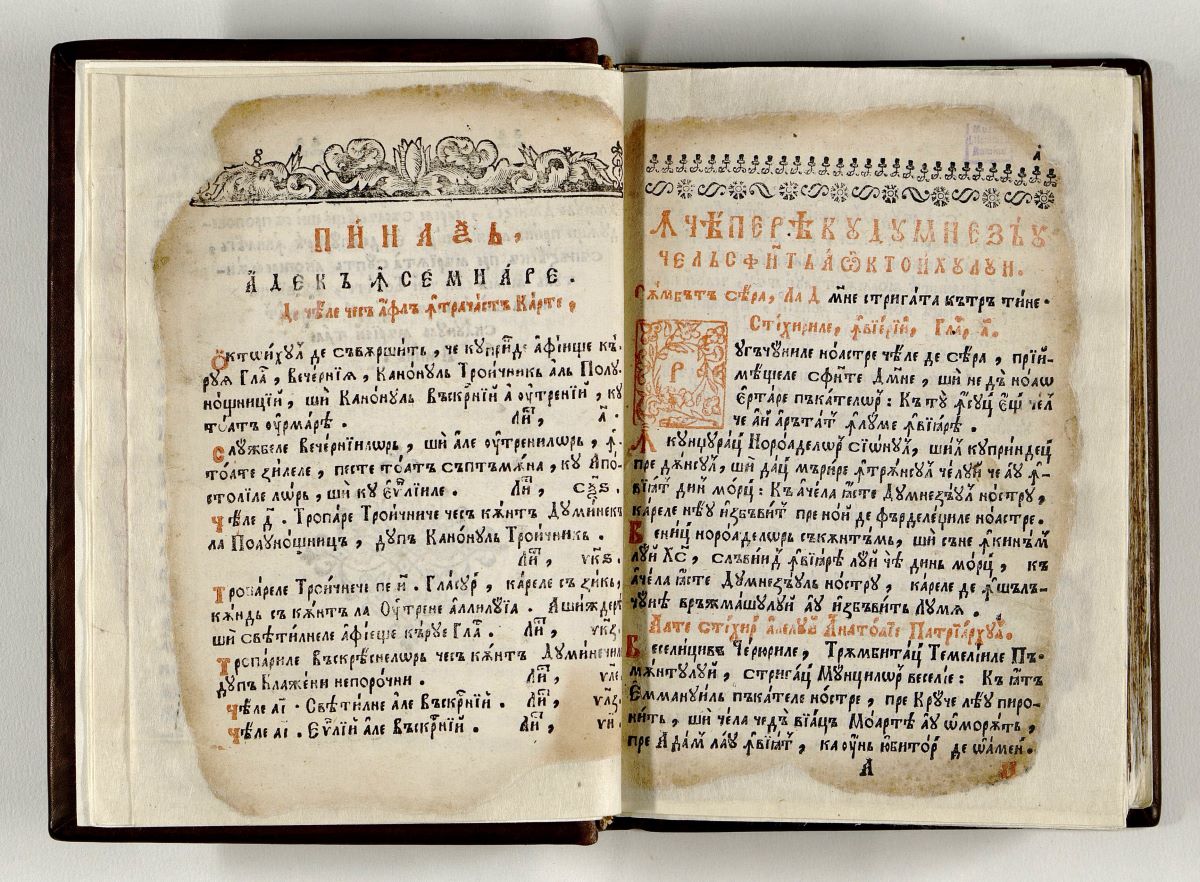 ПИ́НАѮЬ,
А҆ДЕКЪ Ꙟ҆СЕМНА́РЕ.
Де чѣле чесъ а҆фл꙽ ꙟ҆трачѣстъ Ка́рте,
Ѻ҆ктѡи́хꙋл꙽ де съвѫршит꙽, че кꙋпри́нде а҆фїеще къ-
рꙋѧ Гла҃, Вече́рнїѧ, Кано́нꙋль Трои́чникь аль Полꙋ-
но́щницїй, ши Кано́нꙋль Въскр҃нїй а҆ ᲂу҆́тренїй, кꙋ
то́атъ ᲂу҆рма́рѣ. Ли҃, а҃.
Слꙋ́жбеле Вече́рнїилѡрь, ши а҆ле ᲂу҆́тренилѡрь, ꙟ҆
тоа́те зи́леле, песте тоа́тъ съптъмѫ́на, кꙋ Апо-
сто́лїле лѡрь, ши кꙋ Е҆ѵⷢ҇лїиле. Ли҃, сѯ҃ѕ.
Чѣле д҃. Тропа́ре Трои́чниче чесъ кѫ́нтъ Дꙋми́некъ
ла Полꙋно́щницъ, дꙋпъ Кано́нꙋль Трои́чникь.
Ли҃, ѵк҃ѕ.
Тропа́реле Трои́чнече пе и҃. Гла́сꙋр꙽, ка́реле съ зи́къ,
кѫ́ндь съ кѫ́нтъ ла Оу҆́трене а҆ллилꙋ́їа. Аши́ждерѣ
ши свѣти́лнеле а҆фїеще къ́рꙋе Гла҃. Ли҃, ѵк҃з.
Тропа́риле Въскре́снелѡрь чесъ кѫ́нтъ Дꙋми́нечиле
дꙋпъ Блаже́ни непоро́чни. Ли҃, ѵле
Чѣле аі҃. Свѣти́лне а҆ле Въскр҃нїй. Ли҃, ѵл҃з.
Чѣле аі҃. Е҆ѵⷢ҇лїй а҆ле Въскр҃нїй. Ли҃, ѵи҃.
а҃
Ꙟ҆ЧѢПЕРѢ КꙊ ДꙊМНЕЗЪꙊ
ЧЕЛЬ СФИ҃ТЬ А҆ Ѡ҆КТОИ́ХꙊЛꙊИ.
Сѫ́мбътъ сѣ́ра, Ла Д꙽мне стрига́та кътръ ти́не.
Сті́хириле, ꙟ҆вїе́рїй, Гла҃с. а҃.
Рꙋгъчꙋ́ниле ноа́стре чѣле де сѣ́ра, прїй-
мѣ́щеле сфи҃те Дм҃не, ши не дъ ноа́ѡ
Е҆рта́ре пъка́телѡр꙽: Къ тꙋ̀ ꙟ҆сꙋц꙽ Е҆щ꙽ чел꙽
че аи҆ а҆ръта́т꙽ ꙟ҆лꙋ́ме ꙟ҆вїа́рѣ.
Ꙟ҆кꙋнцꙋра́ц꙽ Нороа́делѡр꙽ Сїѡ́нꙋл꙽, шил꙽ кꙋпри́ндец꙽
пре дѫ́нсꙋл꙽, ши да́ц꙽ мъри́ре ꙟ҆трѫ́нсꙋл꙽ че́лꙋй че аꙋ ꙟ҆-
вїа́т꙽ дин꙽ мо́рц꙽: Къ а҆че́ла ꙗ҆́сте Дꙋмнезъ́ꙋл꙽ но́стрꙋ,
ка́реле нѣꙋ и҆збъви́т꙽ пре но́й де фърделѣ́циле ноа́стре.
Вени́ц꙽ нороа́делѡрь съкѫ́нтъм꙽, ши съне ꙟ҆кинъ́м꙽
лꙋ́й Хс҃, слъви́нд꙽ ꙟ҆вїа́рѣ лꙋ́й чѣ динь мо́рц꙽, къ
а҆че́ла ꙗ҆́сте Дꙋмнезъ́ꙋль но́стрꙋ, ка́реле де ꙟ҆шълъ-
чꙋ́нѣ врѫжма́шꙋлꙋй аꙋ и҆збъви́ть Лꙋ́мѧ.
А҆лте сті́хир꙽ а҆лелꙋй А҆нато́лїе Патрїа́рхꙋл꙽.
Веселици́вь Че́рюриле, Трѫмбита́ц꙽ Темелі́иле Пъ-
мѫ́нтꙋлꙋй, стрига́ц꙽ Мꙋ́нцилѡр꙽ веселі́е: Къ ꙗ҆тъ
Е҆ммануи́ль пъка́теле но́стре, пре Крꙋ́че лѣꙋ пиро-
ни́ть, ши че́ла чедъ вїа́цъ Моа́рте аꙋ ѡ҆морѫ́ть,
пре А҆да́м꙽ лаꙋ ꙟ҆вїа́т꙽, ка ᲂу҆нь юби́тор꙽ де ѡ҆а́мен꙽.
А